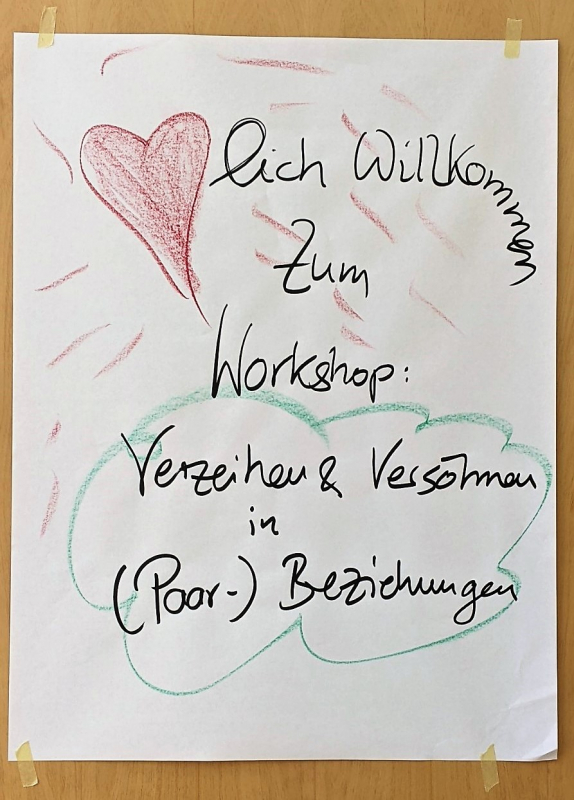 lich Willkommen
Zum
Workshop:
Verzeihen & Versöhnen
in
(Paar-) Beziehungen